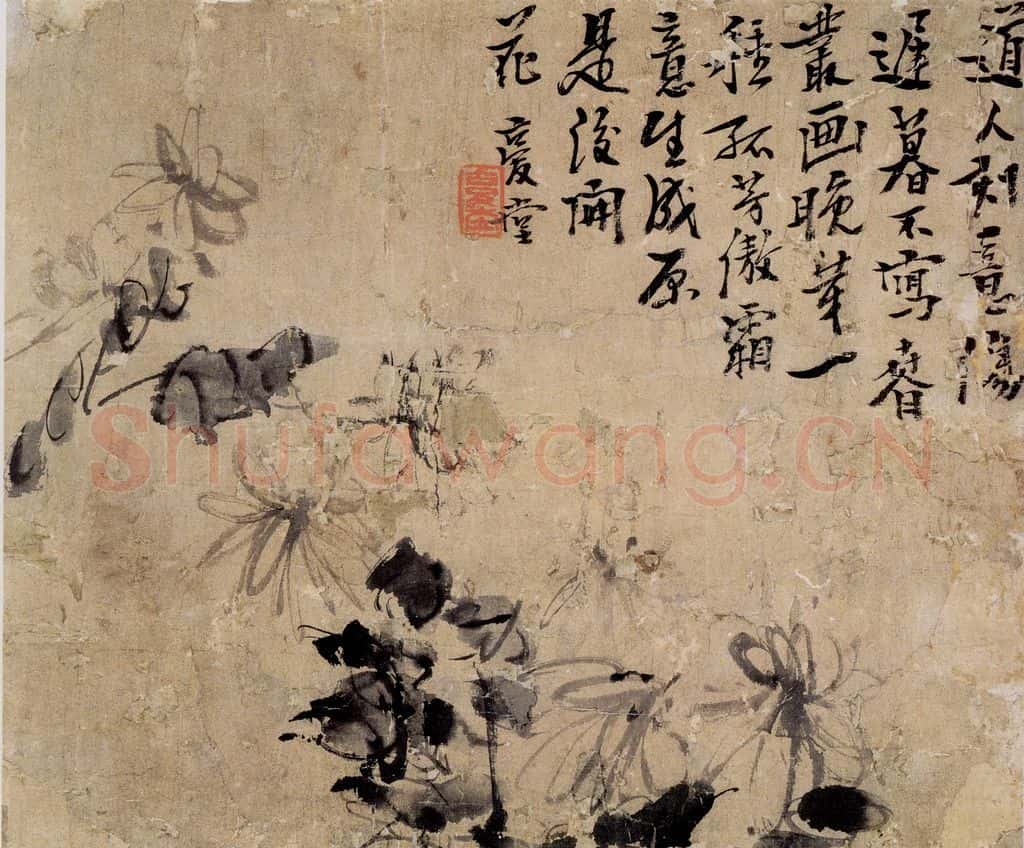 道人刻意傷
遲暮不寫春
叢画晚華一
種孤芳傲霜
意生成原
是後開
花 愛堂
Shufawang.CN